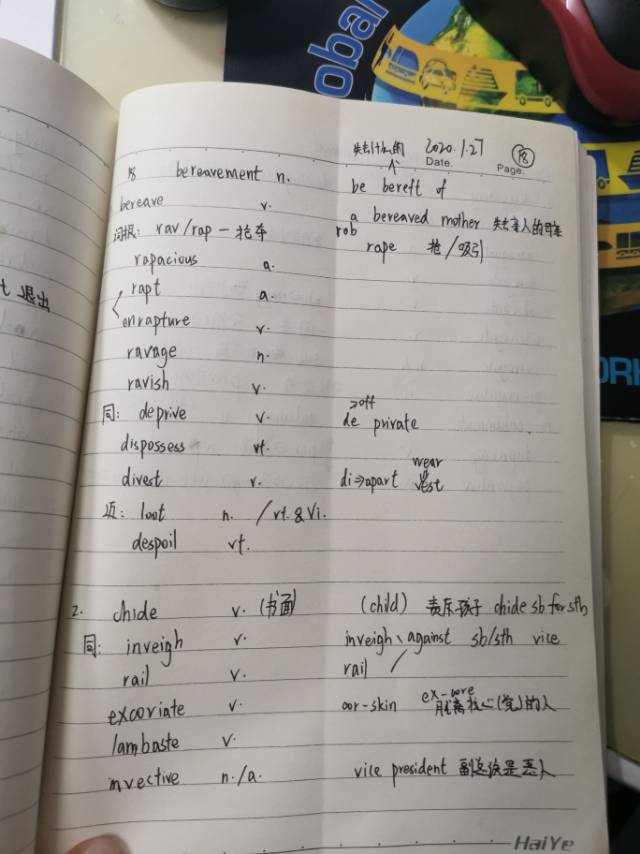 obal
ORK
退出
失去什么的 2020.1.27 P8
Date. Page.
bereavement n. be bereft of
bereave v. a bereaved mother 失去亲人的母亲
词根: rav/rap — 抢夺 rob
rape 抢/吸引
rapacious a.
rapt a.
enrapture v.
ravage n.
ravish v.
同: deprive v. de ⇒off private
dispossess vt.
divest v. di⇒apart vest wear
loot n. /vt.&vi.
despoil vt.
2. chide v. (书面) (child) 责斥孩子 chide sb for sth
同: inveigh v. inveigh、against sb/sth vice
rail v. rail
excoriate v. cor-skin ex-core 脱离核心(党)的人
lambaste v.
invective n./a. vice president 副总统是恶人
HaiYe